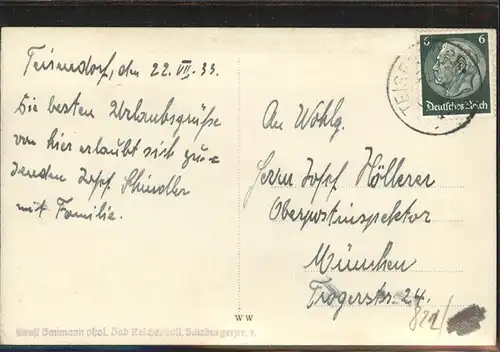 Teisendorf, den 22. VII. 33.
Die besten Urlaubsgrüße
von hier erlaubt sich zu=
senden Josef Schindler
mit Familie.
6 6
Deutsches Reich
An Wohlg.
Herrn Josef Höllerer
Oberpostinspektor
München
Trogerstr. 24.
821/
WW
Ernst Baumann phot. Bad Reichenhall, Salzburgerstr.